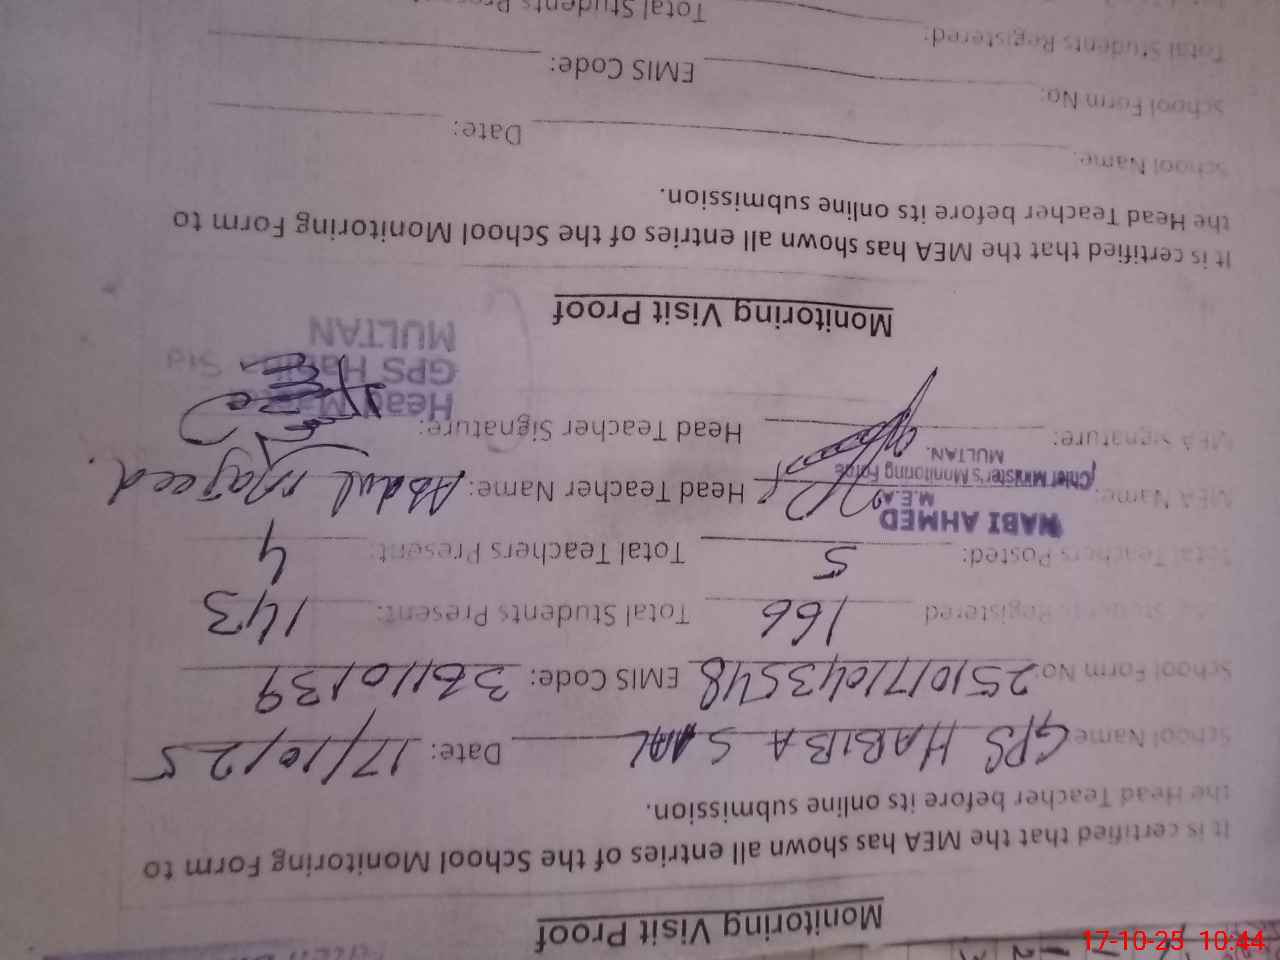 Monitoring Visit Proof
It is certified that the MEA has shown all entries of the School Monitoring Form to
the Head Teacher before its online submission.
School Name: GPS HABIBA SIAL Date: 17/10/25
School Form No: 2510171043548 EMIS Code: 36110139
Students Registered 166 Total Students Present: 143
Total Teachers Posted: 5 Total Teachers Present: 4
NABI AHMED
M.E.A
MEA Name: Head Teacher Name: Abdul Majeed.
Chief Minister's Monitoring Force
MULTAN.
MEA Signature: Head Teacher Signature:
Head
GPS Habiba
MULTAN
Monitoring Visit Proof
It is certified that the MEA has shown all entries of the School Monitoring Form to
the Head Teacher before its online submission.
School Name: Date:
School Form No: EMIS Code:
Total Students Registered: Total Students
17-10-25 10:44